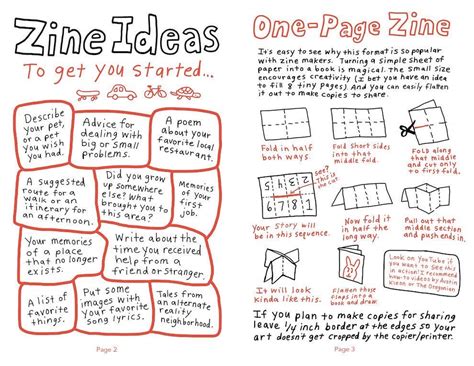 Zine Ideas
To get you started...
Describe
your pet,
or a pet
you wish
you had.
Advice for
dealing with
big or small
problems.
A poem
about your
favorite local
restaurant.
A suggested
route for a
walk or an
itinerary for
an afternoon.
Did you grow
up somewhere
else? What
brought you to
this area?
Memories
of your
first
job.
Your memories
of a place
that no longer
exists.
Write about the
time you received
help from a
friend or stranger.
A list of
favorite
things.
Put some
images with
your favorite
song lyrics.
Tales from
an alternate
reality
neighborhood.
Page 2
One-Page Zine
It's easy to see why this format is so popular
with zine makers. Turning a simple sheet of
paper into a book is magical. The small size
encourages creativity (I bet you have an idea
to fill 8 tiny pages). And you can easily flatten
it out to make copies to share.
Fold in half
both ways.
Fold short sides
into that
middle fold.
Fold along
that middle
and cut only
to first fold.
See?
This is
the cut.
Your story will
be in this sequence.
Now fold it
in half the
long way.
Pull out that
middle section
and push ends in.
It will look
kinda like this.
Flatten these
flaps into a book
and draw
Look on YouTube if
you want to see this
in action! I recommend
how-to videos by Austin
Kleon or The Oregonian
If you plan to make copies for sharing
leave 1/4 inch border at the edges so your
art doesn't get cropped by the copier/printer.
Page 3